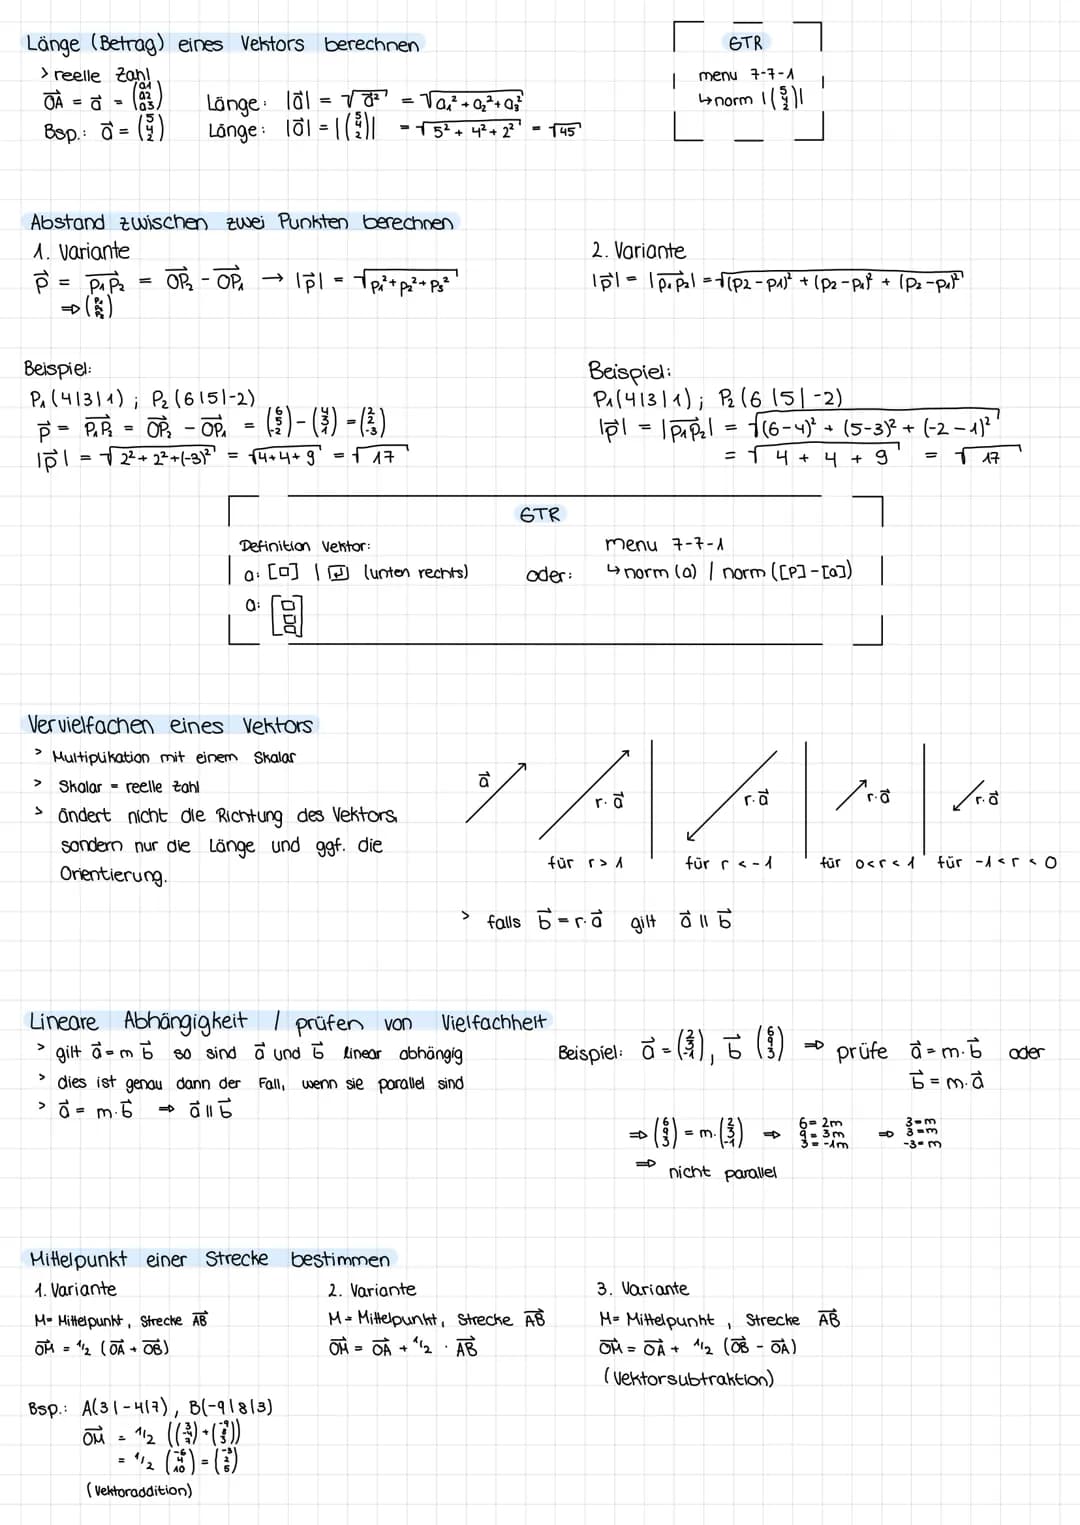 Länge (Betrag) eines Vektors berechnen
> reelle Zahl
OA⃗ = a⃗ = (a1 a2 a3) Länge: |a⃗| = √a⃗² = √a₁² + a₂² + a₃²
Bsp.: a⃗ = (5 4 2) Länge: |a⃗| = |(5 4 2)| = √5² + 4² + 2² = √45
GTR
menu 7-7-1
↳ norm |(5 4 2)|
Abstand zwischen zwei Punkten berechnen
1. Variante
p⃗ = P₁P₂⃗ = OP₂⃗ - OP₁⃗ → |p⃗| = √p₁² + p₂² + p₃²
2. Variante
|p⃗| = |P₁P₂⃗| = √(p2 - p1)² + (p2 - p1)² + (p2 - p1)²
Beispiel:
P₁(4|3|1) ; P₂(6|5|-2)
p⃗ = P₁P₂⃗ = OP₂⃗ - OP₁⃗ = (6 5 -2) - (4 3 1) = (2 2 -3)
|p⃗| = √2² + 2² + (-3)² = √4+4+9 = √17
Beispiel:
P₁(4|3|1) ; P₂(6|5|-2)
|p⃗| = |P₁P₂⃗| = √(6-4)² + (5-3)² + (-2-1)²
= √4 + 4 + 9 = √17
GTR
Definition Vektor:
a: [□] | ↵ (unten rechts)
a: [□ □ □]
oder:
menu 7-7-1
↳ norm (a) / norm ([P]-[a])
Vervielfachen eines Vektors
> Multiplikation mit einem Skalar
> Skalar = reelle Zahl
> ändert nicht die Richtung des Vektors,
sondern nur die Länge und ggf. die
Orientierung.
a⃗ r·a⃗ r·a⃗ r·a⃗ r·a⃗
für r > 1 für r < -1 für 0<r<1 für -1<r<0
> falls b⃗ = r·a⃗ gilt a⃗ || b⃗
Lineare Abhängigkeit / prüfen von Vielfachheit
> gilt a⃗ = m b⃗ so sind a⃗ und b⃗ linear abhängig
> dies ist genau dann der Fall, wenn sie parallel sind
> a⃗ = m·b⃗ ⇒ a⃗ || b⃗
Beispiel: a⃗ = (2 3 -1), b⃗ (6 9 3) ⇒ prüfe a⃗ = m·b⃗ oder
b⃗ = m·a⃗
⇒ (6 9 3) = m·(2 3 -1) ⇒ 6 = 2m 9 = 3m 3 = -1m ⇒ 3=m 3=m -3=m
⇒ nicht parallel
Mittelpunkt einer Strecke bestimmen
1. Variante
M = Mittelpunkt, Strecke AB
OM⃗ = 1/2 (OA⃗ + OB⃗)
2. Variante
M = Mittelpunkt, Strecke AB
OM⃗ = OA⃗ + 1/2 · AB⃗
3. Variante
M = Mittelpunkt, Strecke AB
OM⃗ = OA⃗ + 1/2 (OB⃗ - OA⃗)
(Vektorsubtraktion)
Bsp.: A(3|-4|7), B(-9|8|3)
OM⃗ = 1/2 ((3 -4 7) + (-9 8 3))
= 1/2 (-6 4 10) = (-3 2 5)
(Vektoraddition)